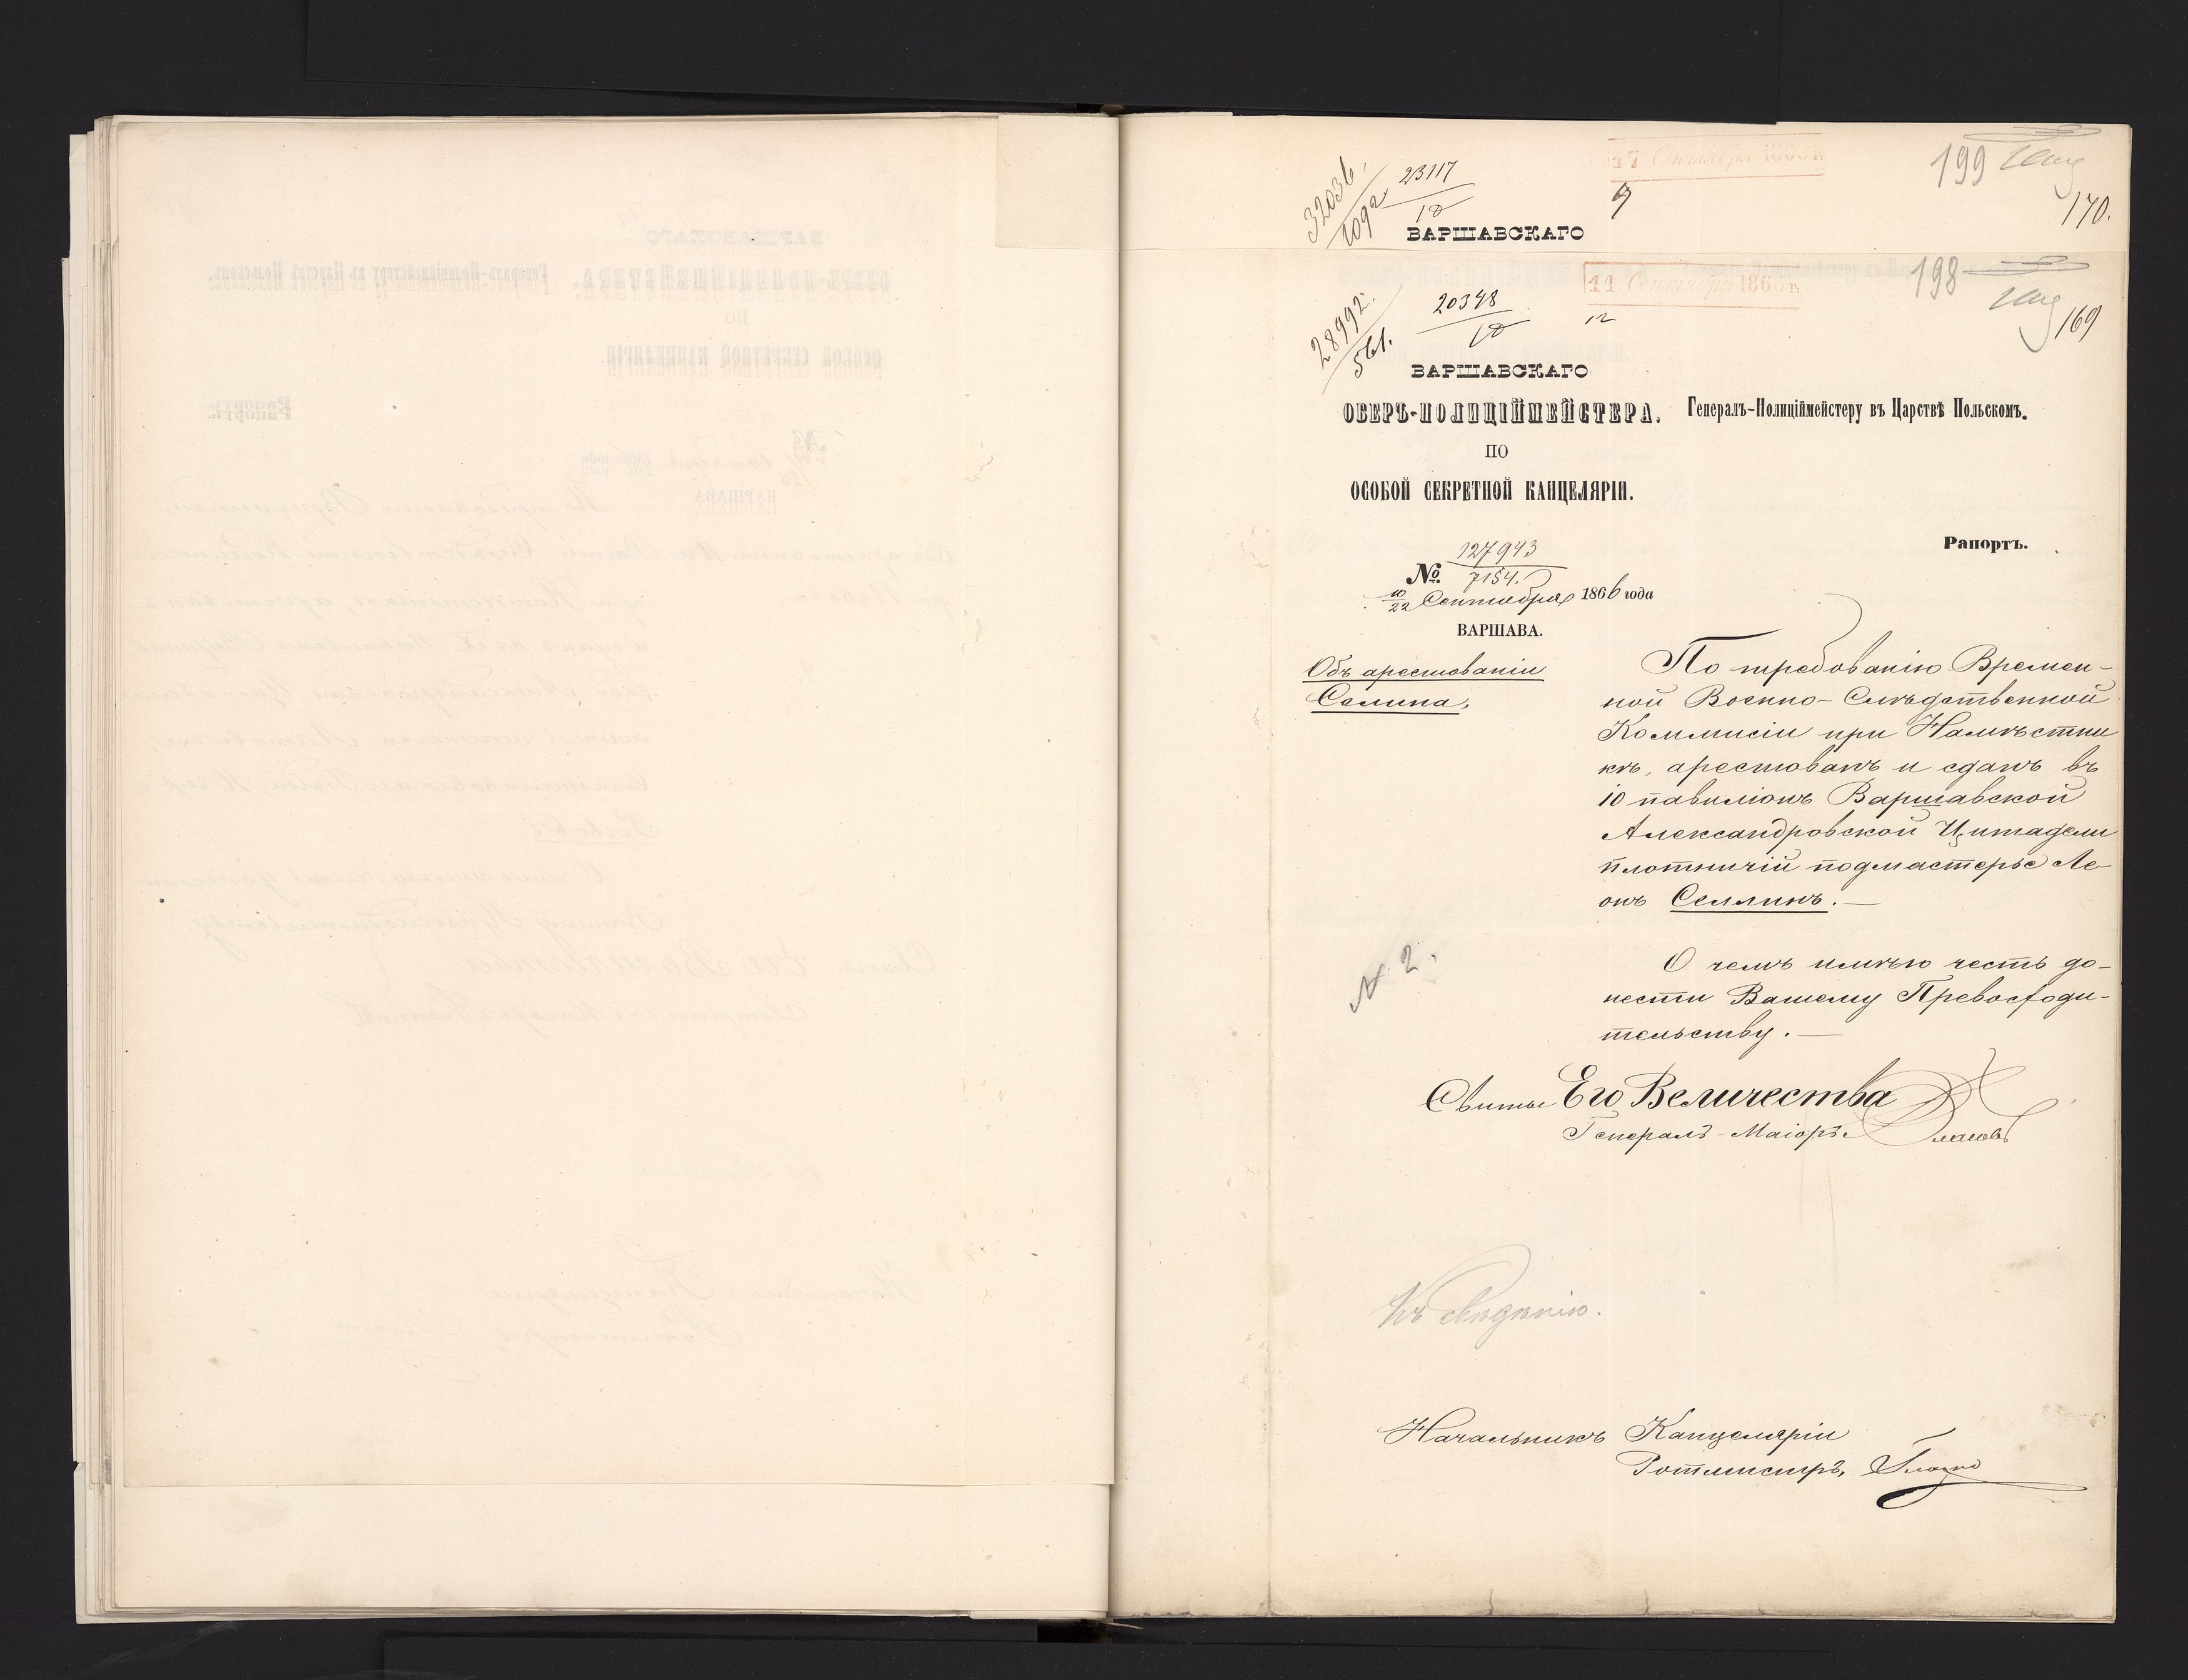 32036
1092
23117
10
17 Октября 1866 г.
9
199
170.
ВАРШАВСКАГО
28992.
561.
20348
10
11 Сентября 1866 г.
12
198
169
ВАРШАВСКАГО
ОБЕРЪ-ПОЛИЦІЙМЕЙСТЕРА.
ПО
ОСОБОЙ СЕКРЕТНОЙ КАНЦЕЛЯРІИ.
Генералъ-Полиціймейстеру въ Царствѣ Польскомъ.
Рапортъ.
127943
№ 7154.
10/22 Сентября 1866 года
ВАРШАВА.
Объ арестованіи
Селина.
По требованію Времен-
ной Военно-Слѣдственной
Коммисіи при Намѣстни
кѣ, арестованъ и сданъ въ
10 павиліонъ Варшавской
Александровской Цитадели
плотничій подмастерье Ле-
онъ Селлинъ.
О чемъ имѣю честь до-
нести Вашему Превосходи-
тельству.
№ 2.
Свиты Его Величества
Генералъ-Маіоръ
Къ свѣдѣнію.
Начальникъ Канцеляріи
Ротмистръ,